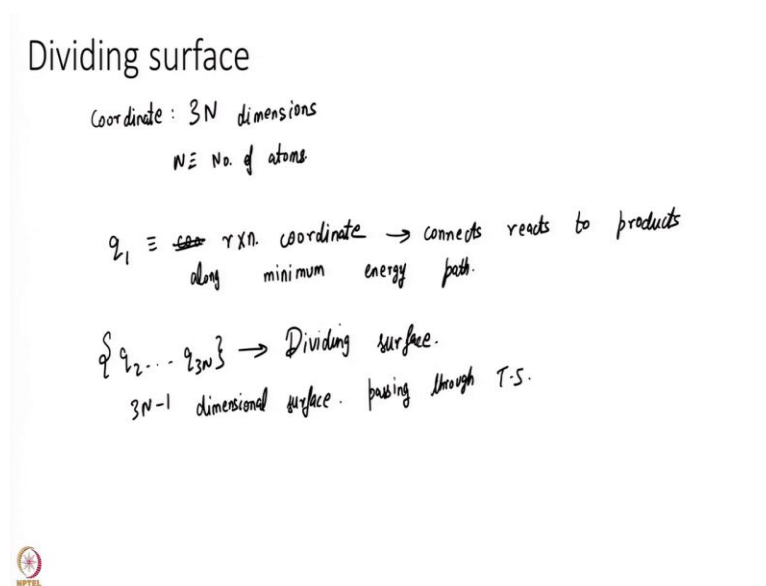 Dividing surface
Coordinate : 3N dimensions
N ≡ No. of atoms.
q₁ ≡ rxn. coordinate → connects reacts to products
along minimum energy path.
{q₂... q₃N} → Dividing surface.
3N-1 dimensional surface. passing through T.S.
NPTEL